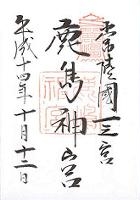 常陸國一之宮
鹿島神宮
平成十四年十月十二日